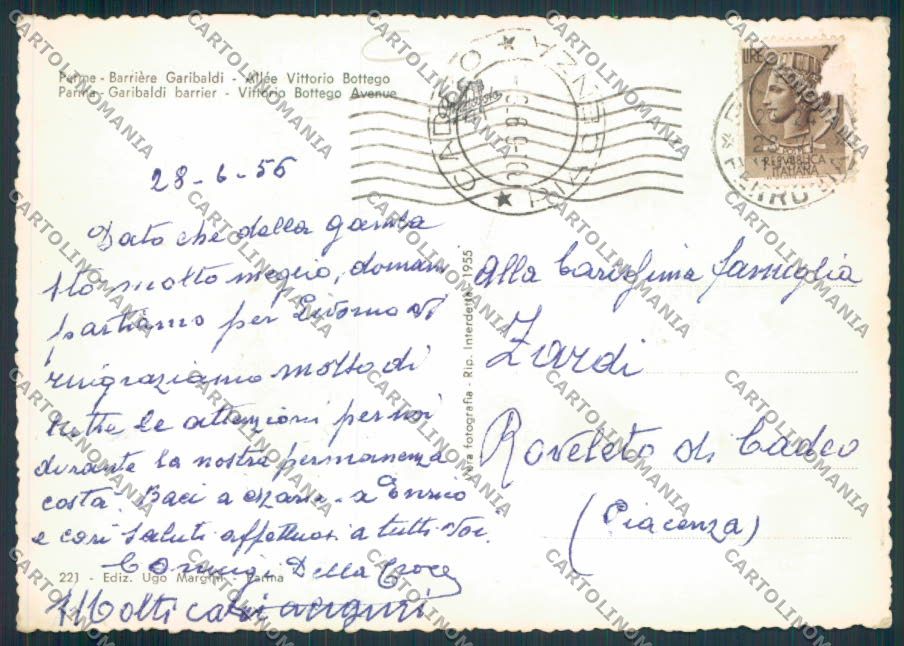 Parma - Barrière Garibaldi - Allée Vittorio Bottego
Parma - Garibaldi barrier - Vittorio Bottego Avenue
28-6-56
Dato che della gamba
sto molto meglio, domani
partiamo per Livorno vi
ringraziamo molto di
tutte le attenzioni per noi
durante la nostra permanenza
costà. Baci a a Enrico
e cari saluti affettuosi a tutti voi.
Coniugi Della Croce
Molti cari auguri
221 - Ediz. Ugo Marghini - Parma
Vera fotografia - Rip. Interdetta - 1955
Alla Carissima famiglia
Zardi
Roveleto di Cadeo
(Piacenza)
CADEO
PIACENZA
LIRE 25
REPUBBLICA
ITALIANA
CARTOLINOMANIA